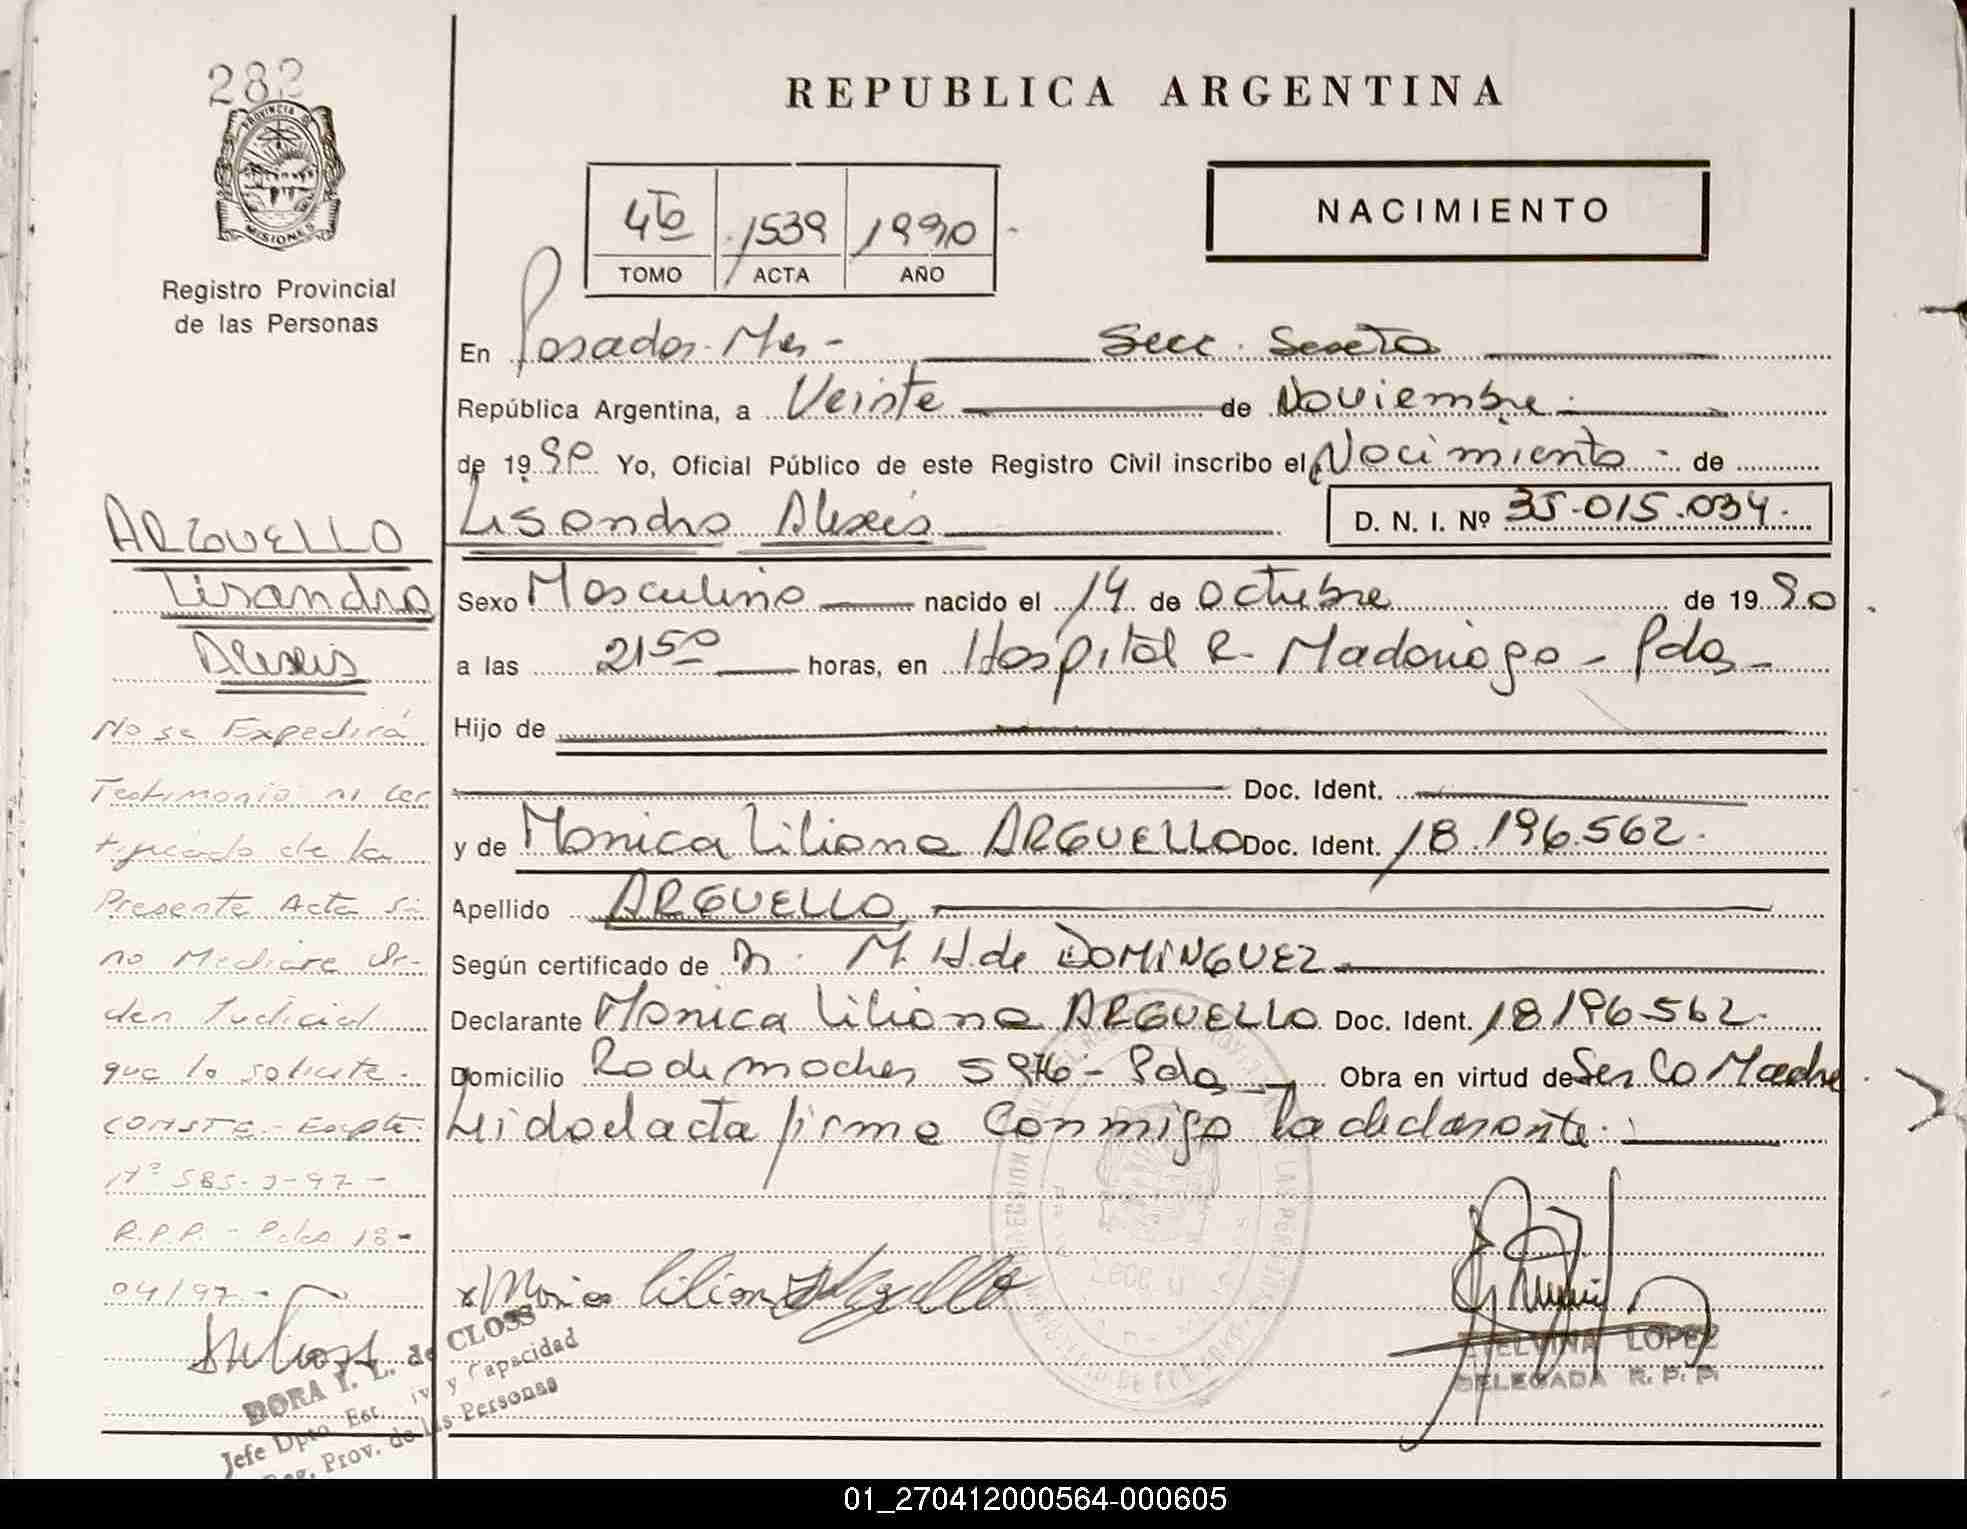 282
PROVINCIA DE
MISIONES
Registro Provincial
de las Personas
REPUBLICA ARGENTINA
4to 1539 1990
TOMO ACTA AÑO
NACIMIENTO
En Posadas Mnes - Secc. Sexta
República Argentina, a Veinte de Noviembre
de 1990 Yo, Oficial Público de este Registro Civil inscribo el Nacimiento - de
Lisandro Alexis D. N. I. Nº 35.015.034.
Sexo Masculino nacido el 14 de Octubre de 1990
a las 21 50 horas, en Hospital R. Madariaga - Pdas -
Hijo de
Doc. Ident.
y de Monica Liliana ARGUELLO Doc. Ident. 18.196.562.
Apellido ARGUELLO
Según certificado de M. H. de DOMINGUEZ
Declarante Monica Liliana ARGUELLO Doc. Ident. 18196562.
Domicilio 5976 - Pdas Obra en virtud de Ser la Madre
Leido el acta firma conmigo la declarante.
ARGUELLO
Lisandro
Alexis
No se Expedirá
Testimonio ni cer
tificado de la
Presente Acta si
no Mediare Or-
den Judicial
que lo solicite.
CONSTE - Expte
Nº 585-J-97 -
R.P.P. - Pdas 18-
04/97 -
DORA I. L. de CLOSS
Jefe Dpto. Est. Civ. y Capacidad
Reg. Prov. de las Personas
x Monica Liliana Arguello
ETELVINA LOPEZ
DELEGADA R. P. P.
01_270412000564-000605